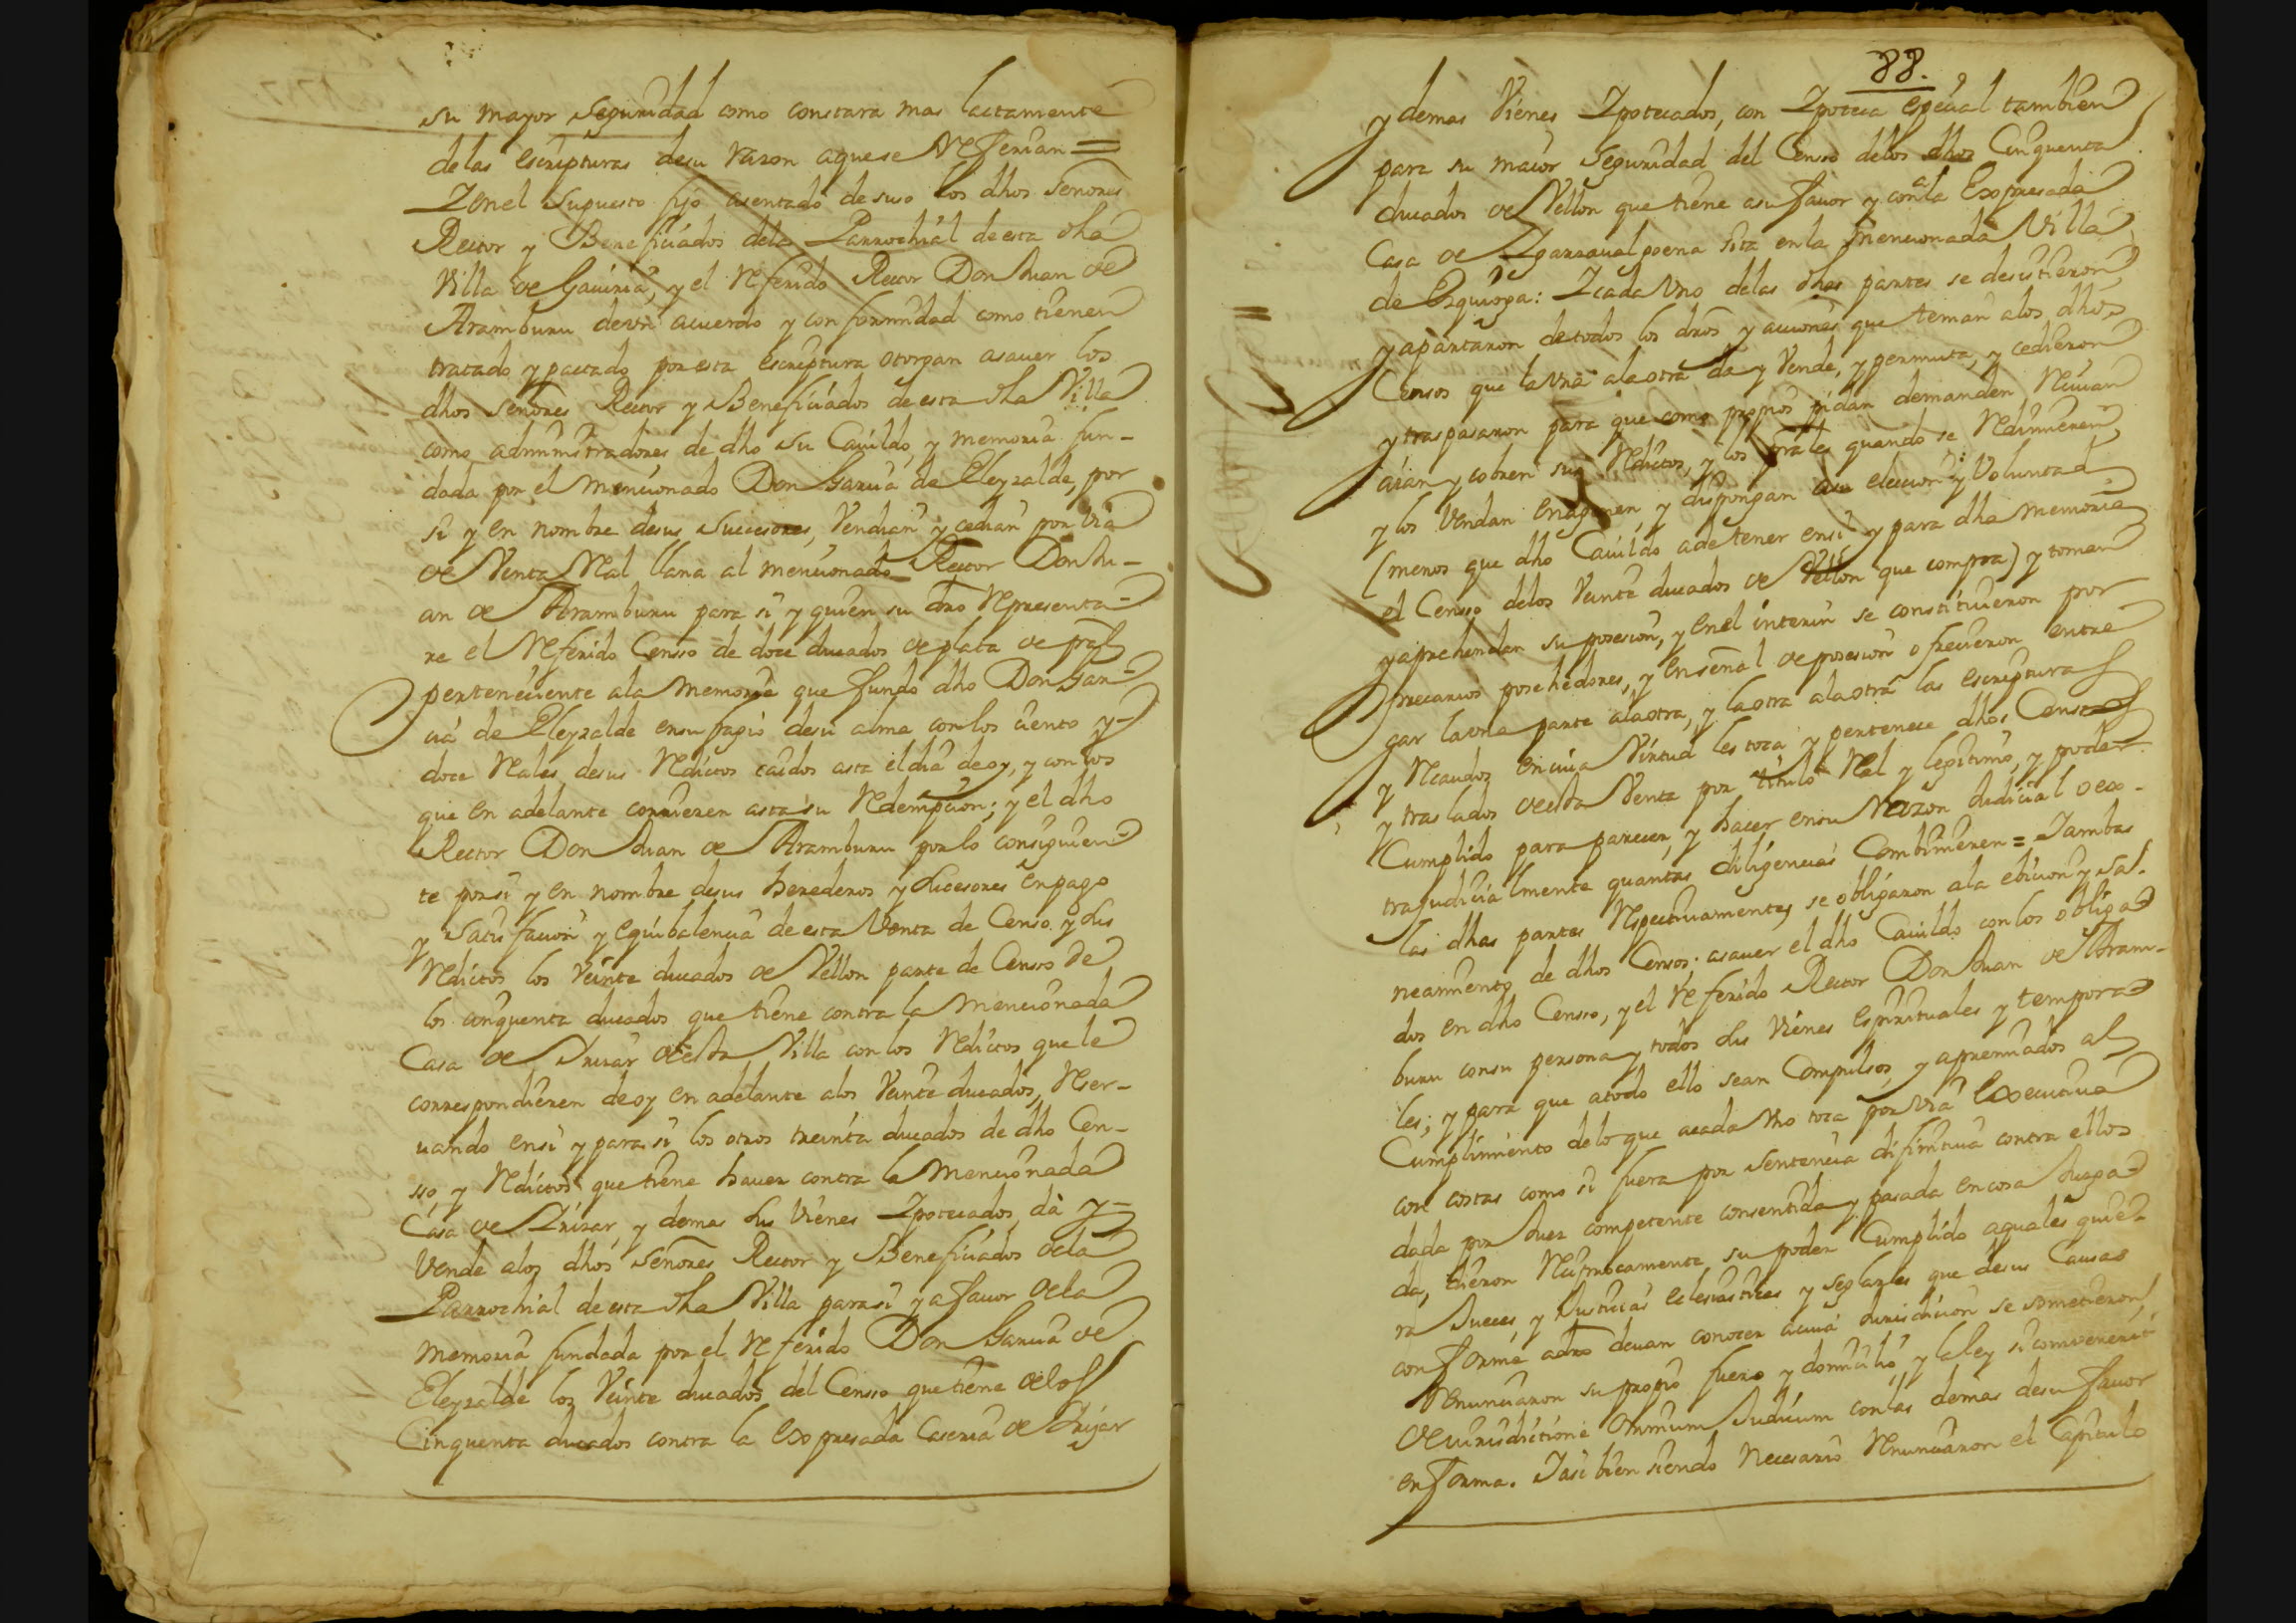 su mayor seguridad como constara mas lactamente
delas escripturas desu razon aque se referian =
Y en el supuesto fijo asentado de suso los dhos señores
Rector y Beneficiados dela Parrochial de esta dha
Villa de Gaviria, y el referido Rector Don Juan de
Aramburu de vn acuerdo y conformidad como tienen
tratado y pactado por esta escriptura otorgan asaver los
dhos señores Rector y Beneficiados de esta dha Villa
como administradores de dho su Cauildo, y memoria fun-
dada por el mencionado Don Garcia de Eleyzalde, por
si y en nombre desus Successores, Vendian y cedian por via
de Venta Real llana al mencionado Rector Don Ju-
an de Aramburu para si y quien su dro representa-
re el referido Censo de doce ducados de plata de pral
perteneciente ala memoria que fundo dho Don Gar-
cia de Eleyzalde en sufragio desu alma con los ciento y
doce Reales desus Reditos caidos asta el dia de oy, y con los
que en adelante corrieren asta su Redempcion; y el dho
Rector Don Juan de Aramburu por lo consiguien-
te por si y en nombre desus herederos y sucesores en pago
y satisfacion y equibalencia de esta Venta de Censo y sus
Reditos los Veinte ducados de Vellon parte de Censo de
los cinquenta ducados que tiene contra la mencionada
Casa de Irizar de esta Villa con los Reditos que le
correspondieren de oy en adelante alos Veinte ducados, Reser-
uando en si y para si los otros treinta ducados de dho Cen-
sso, y Reditos que tiene hauer contra la mencionada
Casa de Irizar, y demas sus Vienes Ypotecados, dà y
Vende alos dhos Señores Rector y Beneficiados dela
Parrochial de esta dha Villa para si y a fauor dela
memoria fundada por el referido Don Garcia de
Eleyzalde los Veinte ducados del Censso que tiene delos
Cinquenta ducados contra la expresada Caseria de Irizar
88.
y demas Vienes Ypotecados, con Ypoteca especial tambien
para su maior Seguridad del Censo delos dhos Cinquenta
ducados de Vellon que tiene a su fauor y contra la Expresada
Casa de Ygarraualpoena sita en la mencionada Villa
de Ezquioga: Y cada vno delas dhas partes se desistieron
y apartaron de todos los dros y acciones que tenian alos dhos
Censos que la vna ala otra da y Vende, y permuta, y cedieron
y traspasaron para que como propios pidan demanden Reciuan
aian y cobren sus Reditos, y los prales quando se Redimieren
y los Vendan enagenen, y dispongan a su eleccion y Voluntad
(menos que dho Cauildo a de tener en si y para dha memoria
el Censo delos Veinte ducados de Vellon que compra) y tomen
y aprehendan su posesion, y en el interin se constituieron por
precarios posehedores, y en señal de posesion ofrecieron entre
gar la vna parte ala otra, y la otra ala otra las escripturas
y Recaudos en cuia Virtud les toca y pertenece dhos Censos
y traslados de esta Venta por titulo Real y legitimo, y poder
Cumplido para parecer, y hacer en su Razon Judicial o ex-
trajudicialmente quantas diligencias Combinieren = Y ambas
las dhas partes Respectiuamente se obligaron ala ebicion y Sa-
neamiento de dhos Censos; asauer el dho Cauildo con los obliga
dos en dho Censo, y el referido Rector Don Juan de Aram-
buru con su persona y todos sus Vienes espirituales y tempora
les; y para que atodo ello sean Compulsos, y apremiados al
Cumplimiento delo que acada vno toca por via Executiua
con costas como si fuera por sentencia difinitiua contra ellos
dada por Juez competente consentida y pasada en cosa Juzga
da, dieron Reciprocamente su poder Cumplido a quales quie-
ra Jueces, y Justicias eclesiasticas y seglares que desus Causas
conforme adro deuan conocer a cuia Jurisdicion se sometieron,
Renunciaron su propio fuero y domicilio, y la ley si conuenerit
de iurisdictione omnium Judicum con las demas desu fauor
en forma. Y asi bien siendo necesario Renunciaron el Capitulo